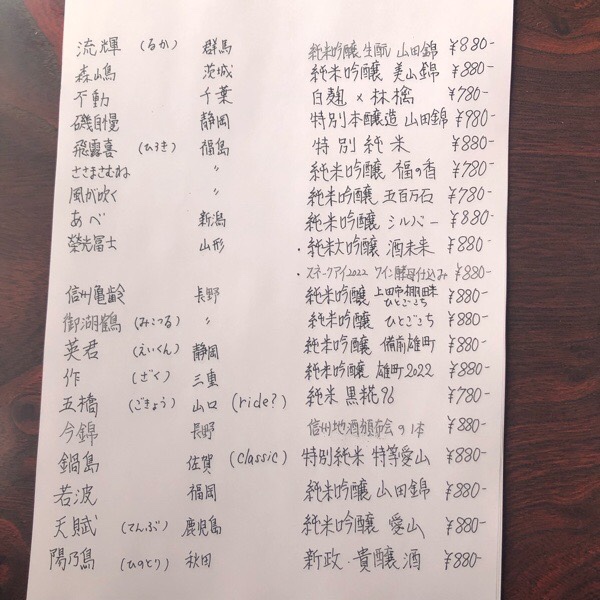 流輝 (るか) 群馬 純米吟醸 生酛 山田錦 ¥880-
森嶋 茨城 純米吟醸 美山錦 ¥880-
不動 千葉 白麹 × 林檎 ¥780-
磯自慢 静岡 特別本醸造 山田錦 ¥980-
飛露喜 (ひろき) 福島 特別純米 ¥880-
ささまさむね 〃 純米吟醸 福の香 ¥780-
風が吹く 〃 純米吟醸 五百万石 ¥780-
あべ 新潟 純米吟醸 シルバー ¥880-
榮光冨士 山形 ・純米大吟醸 酒未来 ¥880-
・スネークアイ2022 ワイン酵母仕込み ¥880-
信州亀齢 長野 純米吟醸 上田市棚田米ひとごこち ¥880-
御湖鶴 (みこつる) 〃 純米吟醸 ひとごこち ¥880-
英君 (えいくん) 静岡 純米吟醸 備前雄町 ¥880-
作 (ざく) 三重 純米吟醸 雄町2022 ¥880-
五橋 (ごきょう) 山口 (ride?) 純米 黒糀96 ¥780-
今錦 長野 信州地酒頒布会の1本 ¥880-
鍋島 佐賀 (classic) 特別純米 特等愛山 ¥880-
若波 福岡 純米吟醸 山田錦 ¥880-
天賦 (てんぶ) 鹿児島 純米吟醸 愛山 ¥880-
陽乃鳥 (ひのとり) 秋田 新政・貴醸酒 ¥880-